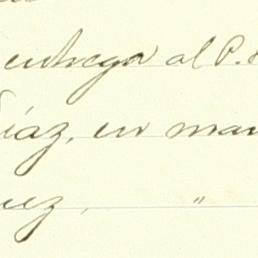 entrega al P.
Díaz, en man
uez, "